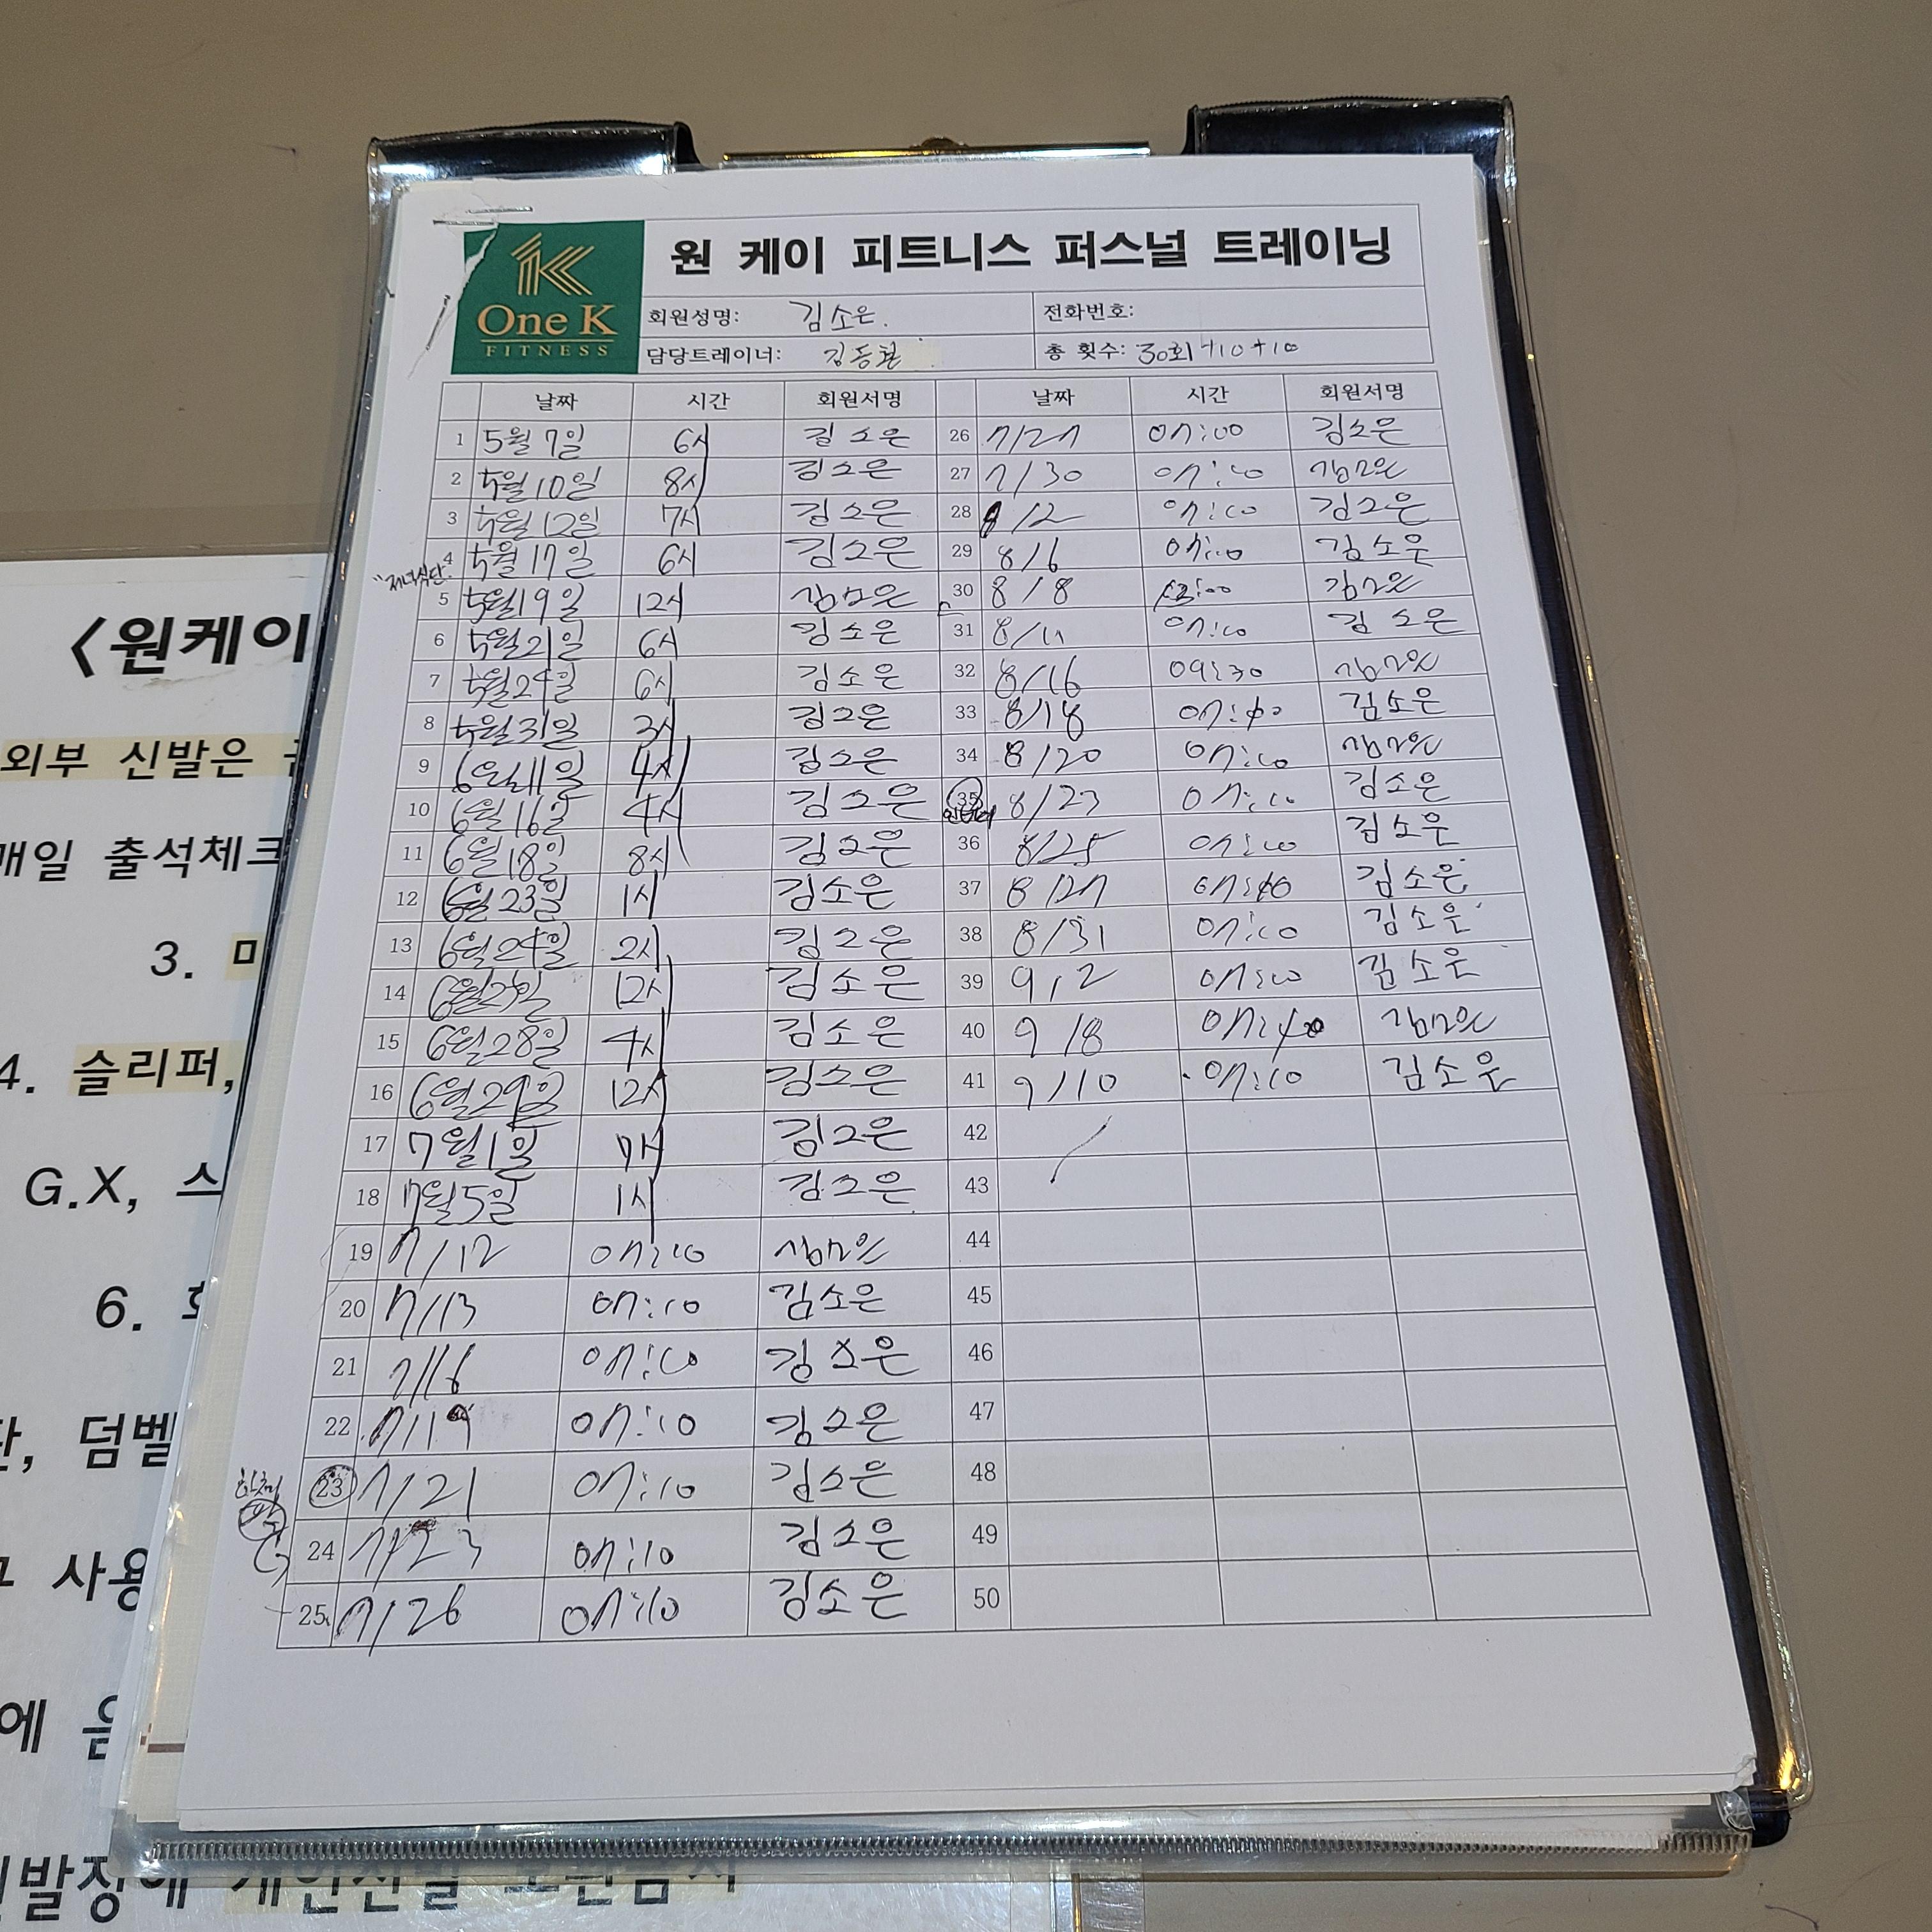 원 케이 피트니스 퍼스널 트레이닝
One K
FITNESS
회원성명: 김소은.
전화번호:
담당트레이너: 김동현
총 횟수: 30회+10+10
날짜 시간 회원서명 날짜 시간 회원서명
1 5월 7일 6시 김소은 26 7/27 07:00 김소은
2 5월 10일 8시 김소은 27 7/30 07:00 김소은
3 5월 12일 7시 김소은 28 8/2 07:00 김소은
4 5월 17일 6시 김소은 29 8/6 07:00 김소은
"저녁식단"
5 5월 19일 12시 김소은 30 8/8 김소은
6 5월 21일 6시 김소은 31 8/11 07:00 김소은
7 5월 24일 6시 김소은 32 8/16 09:30 김소은
8 5월 31일 3시 김소은 33 8/18 김소은
9 6월 11일 4시 김소은 34 8/20 07:00 김소은
10 6월 16일 4시 김소은 35 8/23 07:10 김소은
11 6월 18일 8시 김소은 36 8/25 07:00 김소은
12 6월 23일 1시 김소은 37 8/27 김소은
13 6월 24일 2시 김소은 38 8/31 07:00 김소은
14 6월 12시 김소은 39 9/2 07:00 김소은
15 6월 28일 4시 김소은 40 9/8 김소은
16 6월 29일 12시 김소은 41 9/10 07:10 김소은
17 7월 1일 7시 김소은 42
18 7월 5일 1시 김소은 43
19 7/12 07:10 김소은 44
20 7/13 07:10 김소은 45
21 7/16 07:00 김소은 46
22 7/19 07:10 김소은 47
23 7/21 07:10 김소은 48
24 7/23 07:10 김소은 49
25 7/26 07:10 김소은 50
<원케이
외부 신발은
매일 출석체크
3.
4. 슬리퍼,
G.X, 스
6.
덤벨
사용
에
신발장에 개인신발 보관금지